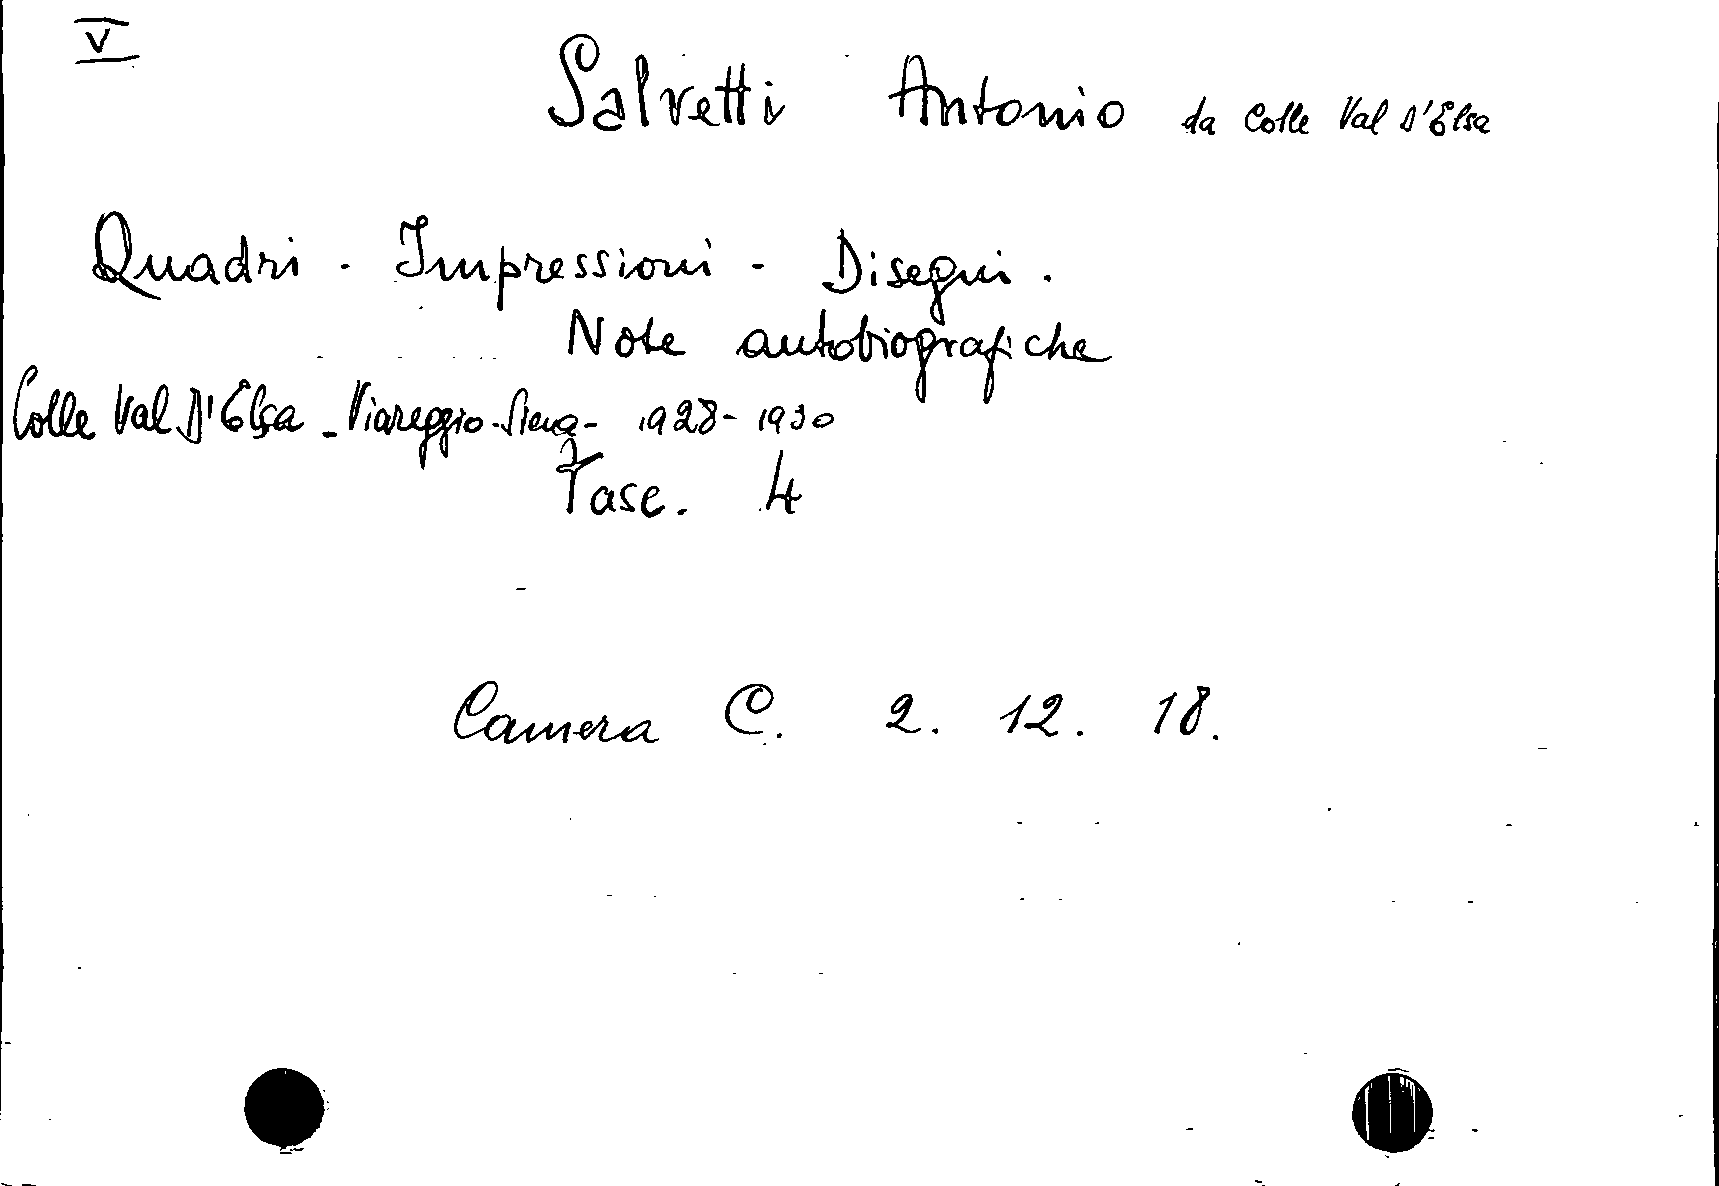 V
Salvetti Antonio da Colle Val D'Elsa
Quadri - Impressioni - Disegni.
Note autobiografiche
Colle Val D'Elsa - Viareggio - Siena - 1928 - 1930
Fasc. 4
Camera C. 2. 12. 18.